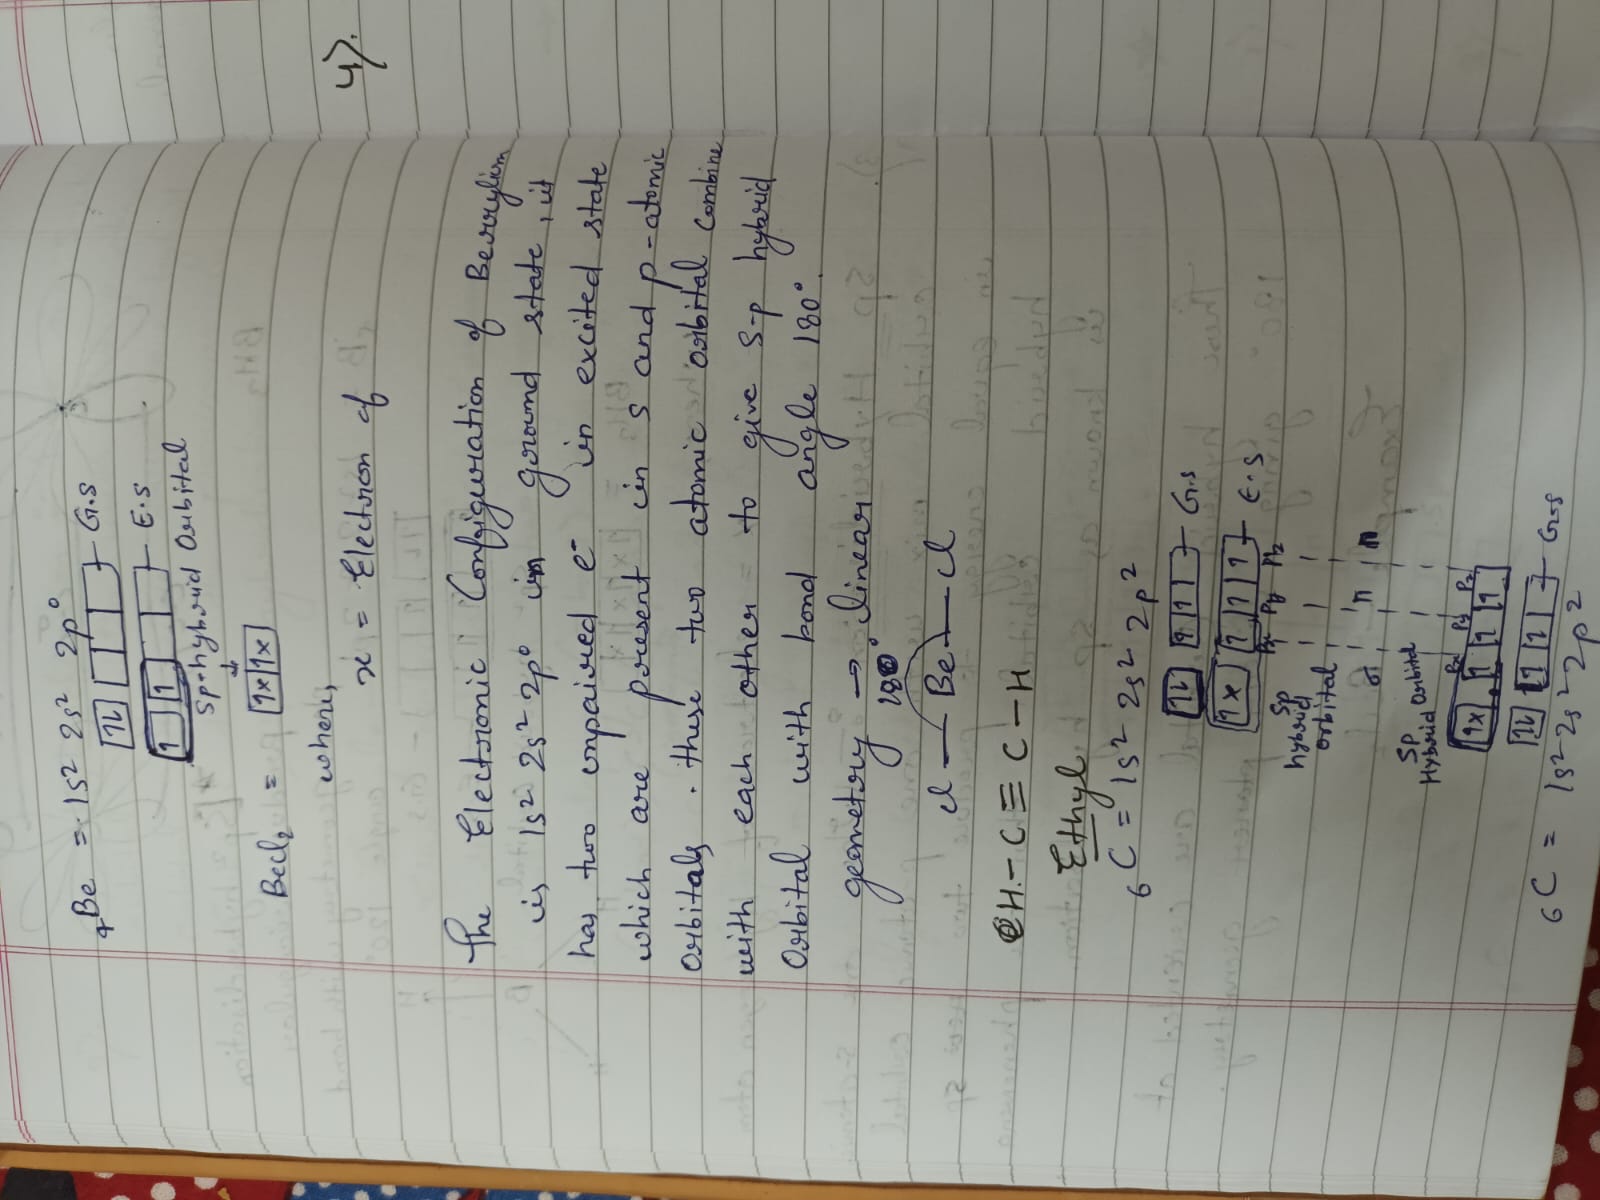 4Be = 1s² 2s² 2p⁰
1⇂ G.S
1 1 E.S
Sp-hybrid Orbital
↓
Becl₂ = 1x 1x
where,
x = Electron of
The Electronic Configuration of Berrylium
is 1s² 2s² 2p⁰ in ground state, it
has two unpaired e⁻ in excited state
which are present in s and p-atomic
Orbitals. these two atomic orbital Combine
with each other to give s-p hybrid
Orbital with bond angle 180°.
geometry → linear
180°
cl — Be — cl
H - C ≡ C - H
Ethyl
6C = 1s² 2s² 2p²
1⇂ 1 1 G.S
1x 1 1 1 E.S
Px Py Pz
Sp
hybrid
orbital
σ π π
SP
Hybrid Orbital
Px Py Pz
1x 1 1 1
1⇂ 1 1 G.S
6C = 1s² 2s² 2p²
4).